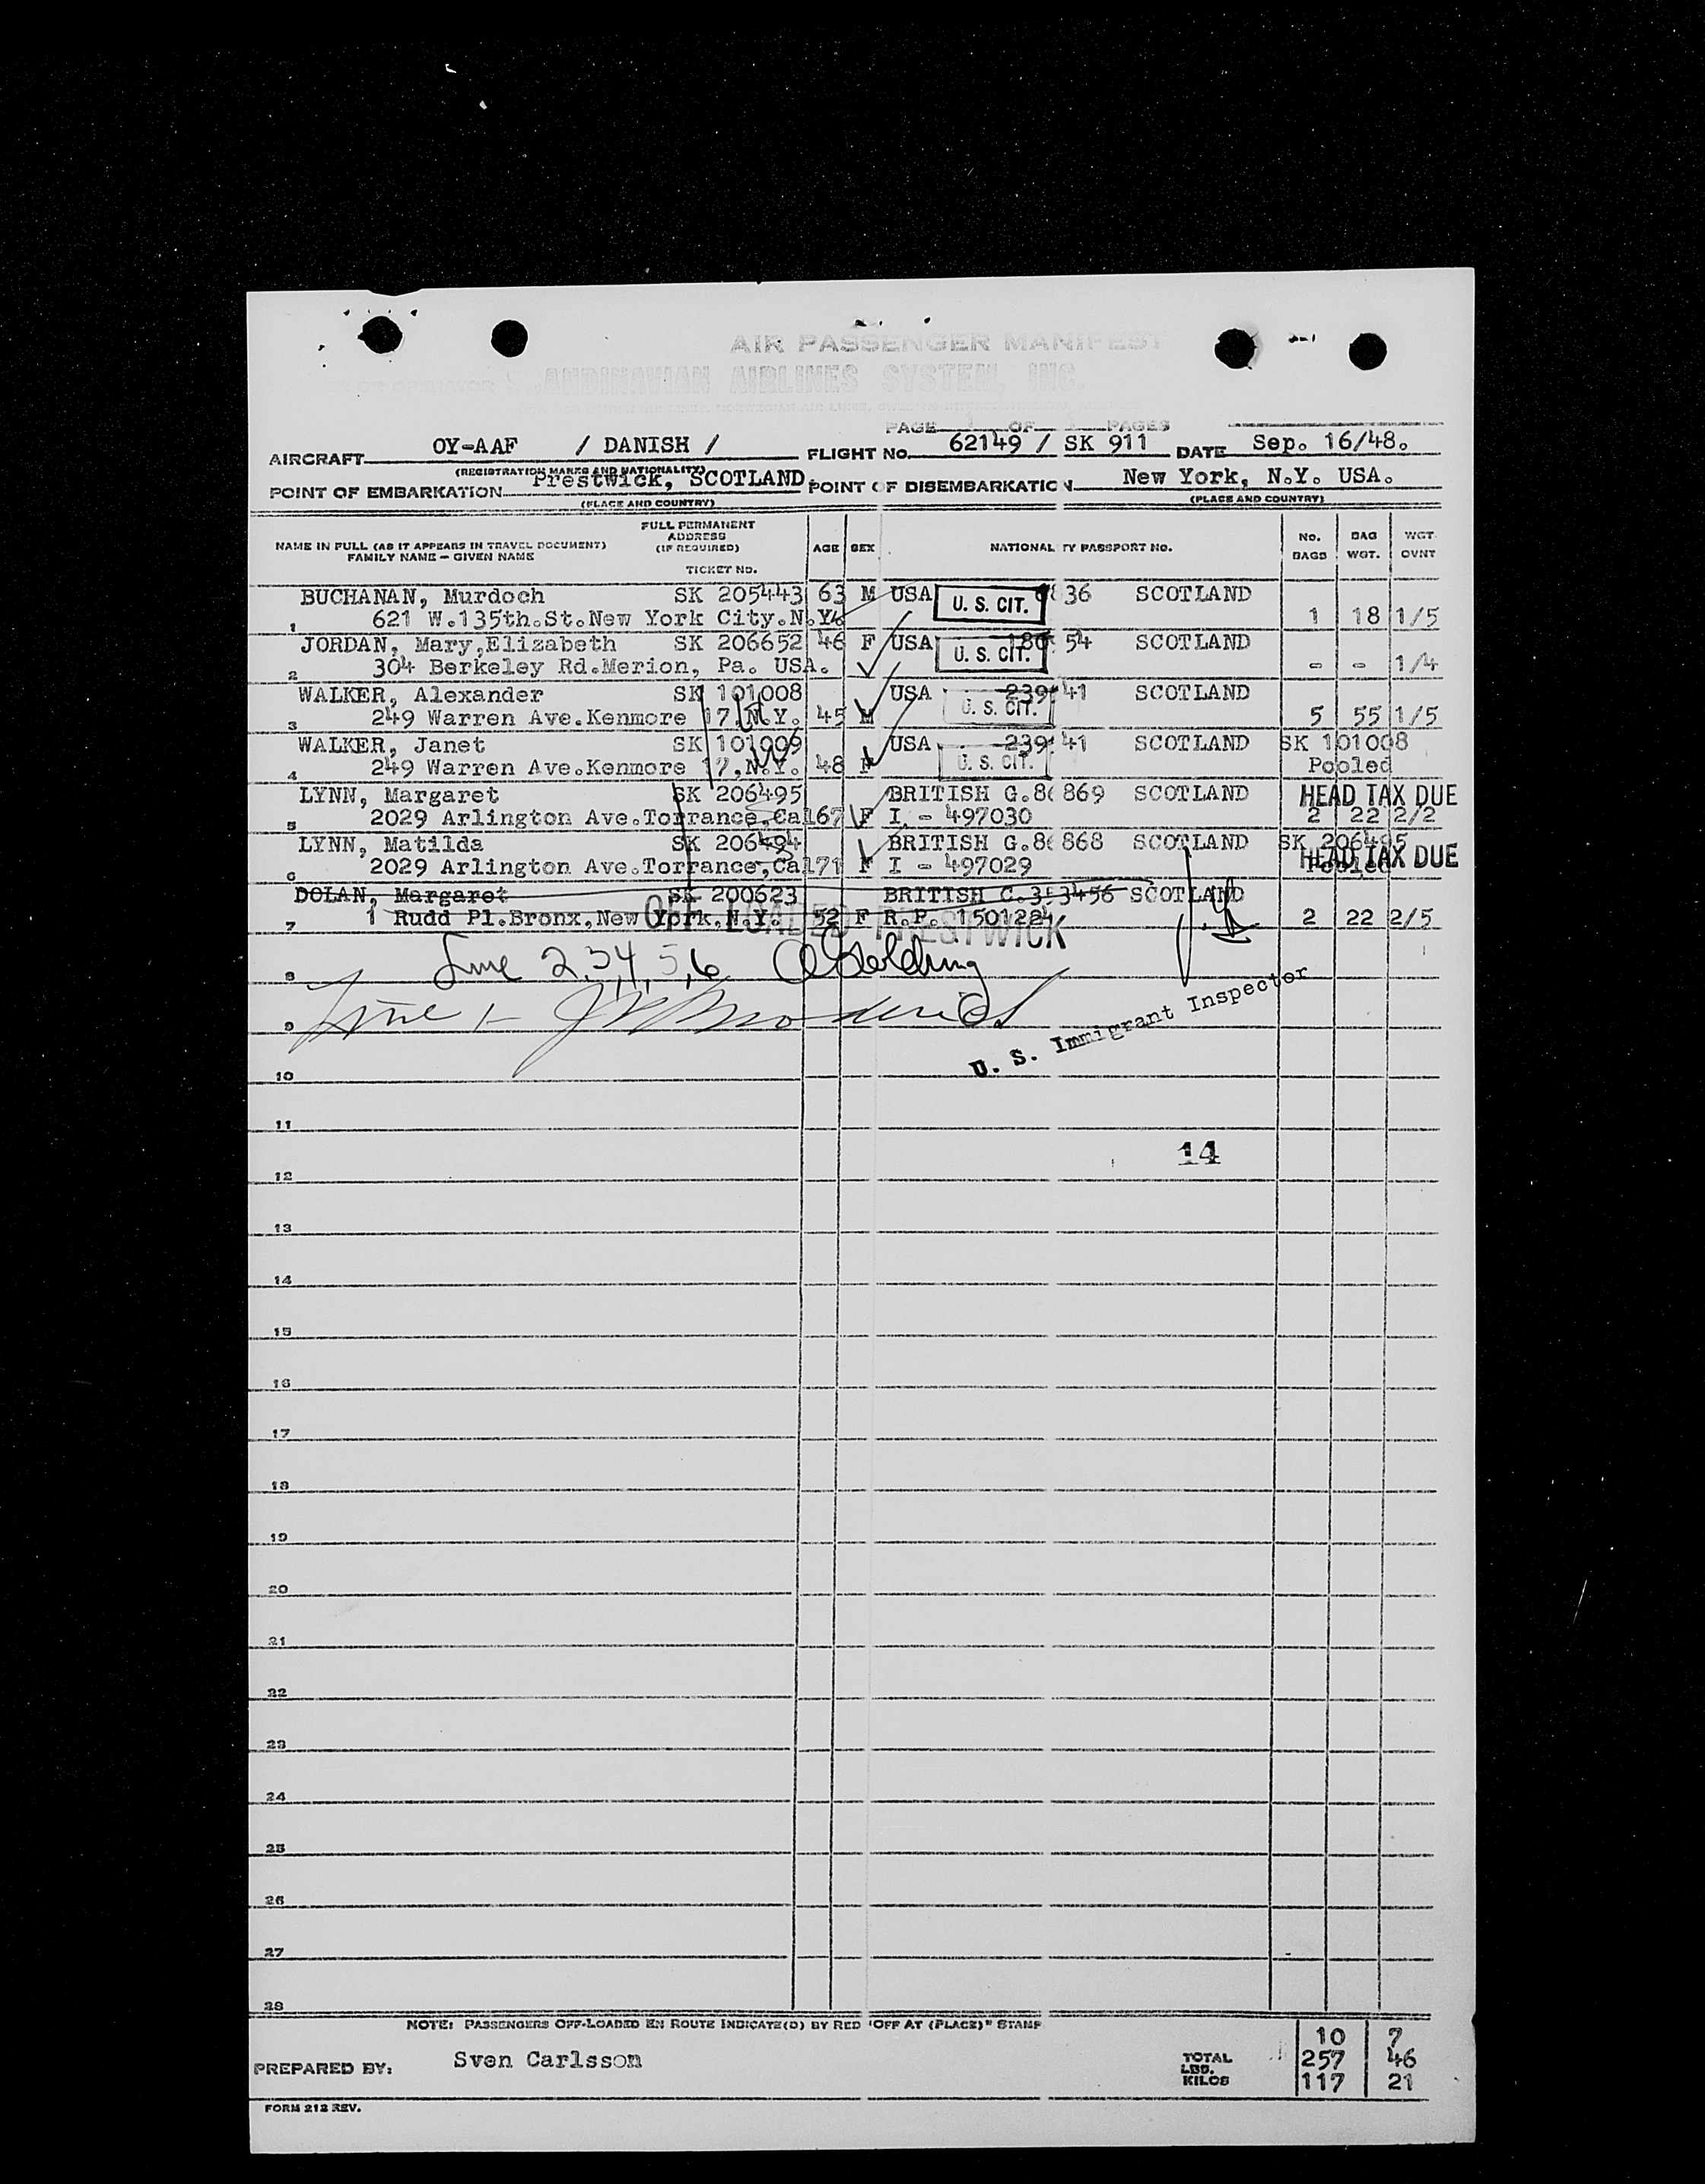 AIR PASSENGER MANIFEST
AIRLINES SYSTEM, INC.
PAGE OF PAGES
AIRCRAFT OY-AAF / DANISH / FLIGHT No. 62149 / SK 911 DATE Sep. 16/48.
(REGISTRATION MARKS AND NATIONALITY)
POINT OF EMBARKATION Prestwick, SCOTLAND. POINT OF DISEMBARKATION New York, N.Y. USA.
(PLACE AND COUNTRY) (PLACE AND COUNTRY)
NAME IN FULL (AS IT APPEARS IN TRAVEL DOCUMENT) FAMILY NAME – GIVEN NAME FULL PERMANENT ADDRESS (IF REQUIRED) TICKET NO. AGE SEX NATIONALITY PASSPORT NO. No. BAGS BAG WGT. WGT OVNT
BUCHANAN, Murdoch SK 205443 63 M USA U. S. CIT. 36 SCOTLAND
1 621 W.135th.St.New York City.N.Y. 1 18 1/5
JORDAN, Mary,Elizabeth SK 206652 46 F USA U. S. CIT. 54 SCOTLAND
2 304 Berkeley Rd.Merion, Pa. USA. - - 1/4
WALKER, Alexander SK 101008 USA 239 41 SCOTLAND
3 249 Warren Ave.Kenmore 17,N.Y. 45 M U. S. CIT. 5 55 1/5
WALKER, Janet SK 101009 USA 239 41 SCOTLAND SK 101008
4 249 Warren Ave.Kenmore 17,N.Y. 48 F U. S. CIT. Pooled
LYNN, Margaret SK 206495 BRITISH G.86 869 SCOTLAND HEAD TAX DUE
5 2029 Arlington Ave.Torrance,Cal 67 F I. - 497030 2 22 2/2
LYNN, Matilda SK 206494 BRITISH G.86 868 SCOTLAND SK 206495
6 2029 Arlington Ave.Torrance,Cal 71 F I - 497029 Pooled HEAD TAX DUE
DOLAN, Margaret SK 200623 BRITISH C.353456 SCOTLAND
7 1 Rudd Pl.Bronx,New York,N.Y. 52 F R.P. 1501284 2 22 2/5
OFF LOADED PRESTWICK
8 Line 2,3,4,5,6
9 Line 1-
U. S. Immigrant Inspector
10
11
14
12
13
14
15
16
17
18
19
20
21
22
23
24
25
26
27
28
NOTE: PASSENGERS OFF-LOADED EN ROUTE INDICATE(D) BY RED "OFF AT (PLACE)" STAMP
10 7
PREPARED BY: Sven Carlsson TOTAL LBS. 257 46
KILOS 117 21
FORM 212 REV.